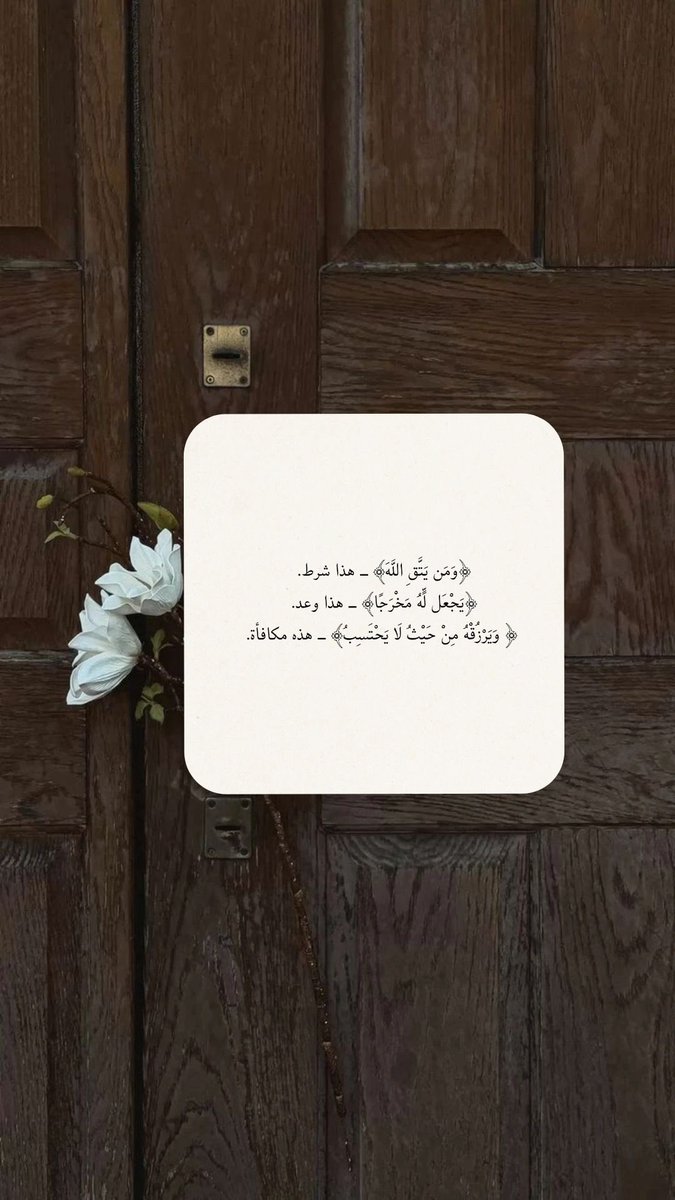 ﴿وَمَن يَتَّقِ اللَّهَ﴾ ــ هذا شرط.
﴿يَجْعَل لَّهُ مَخْرَجًا﴾ ــ هذا وعد.
﴿ وَيَرْزُقْهُ مِنْ حَيْثُ لَا يَحْتَسِبُ﴾ ــ هذه مكافأة.